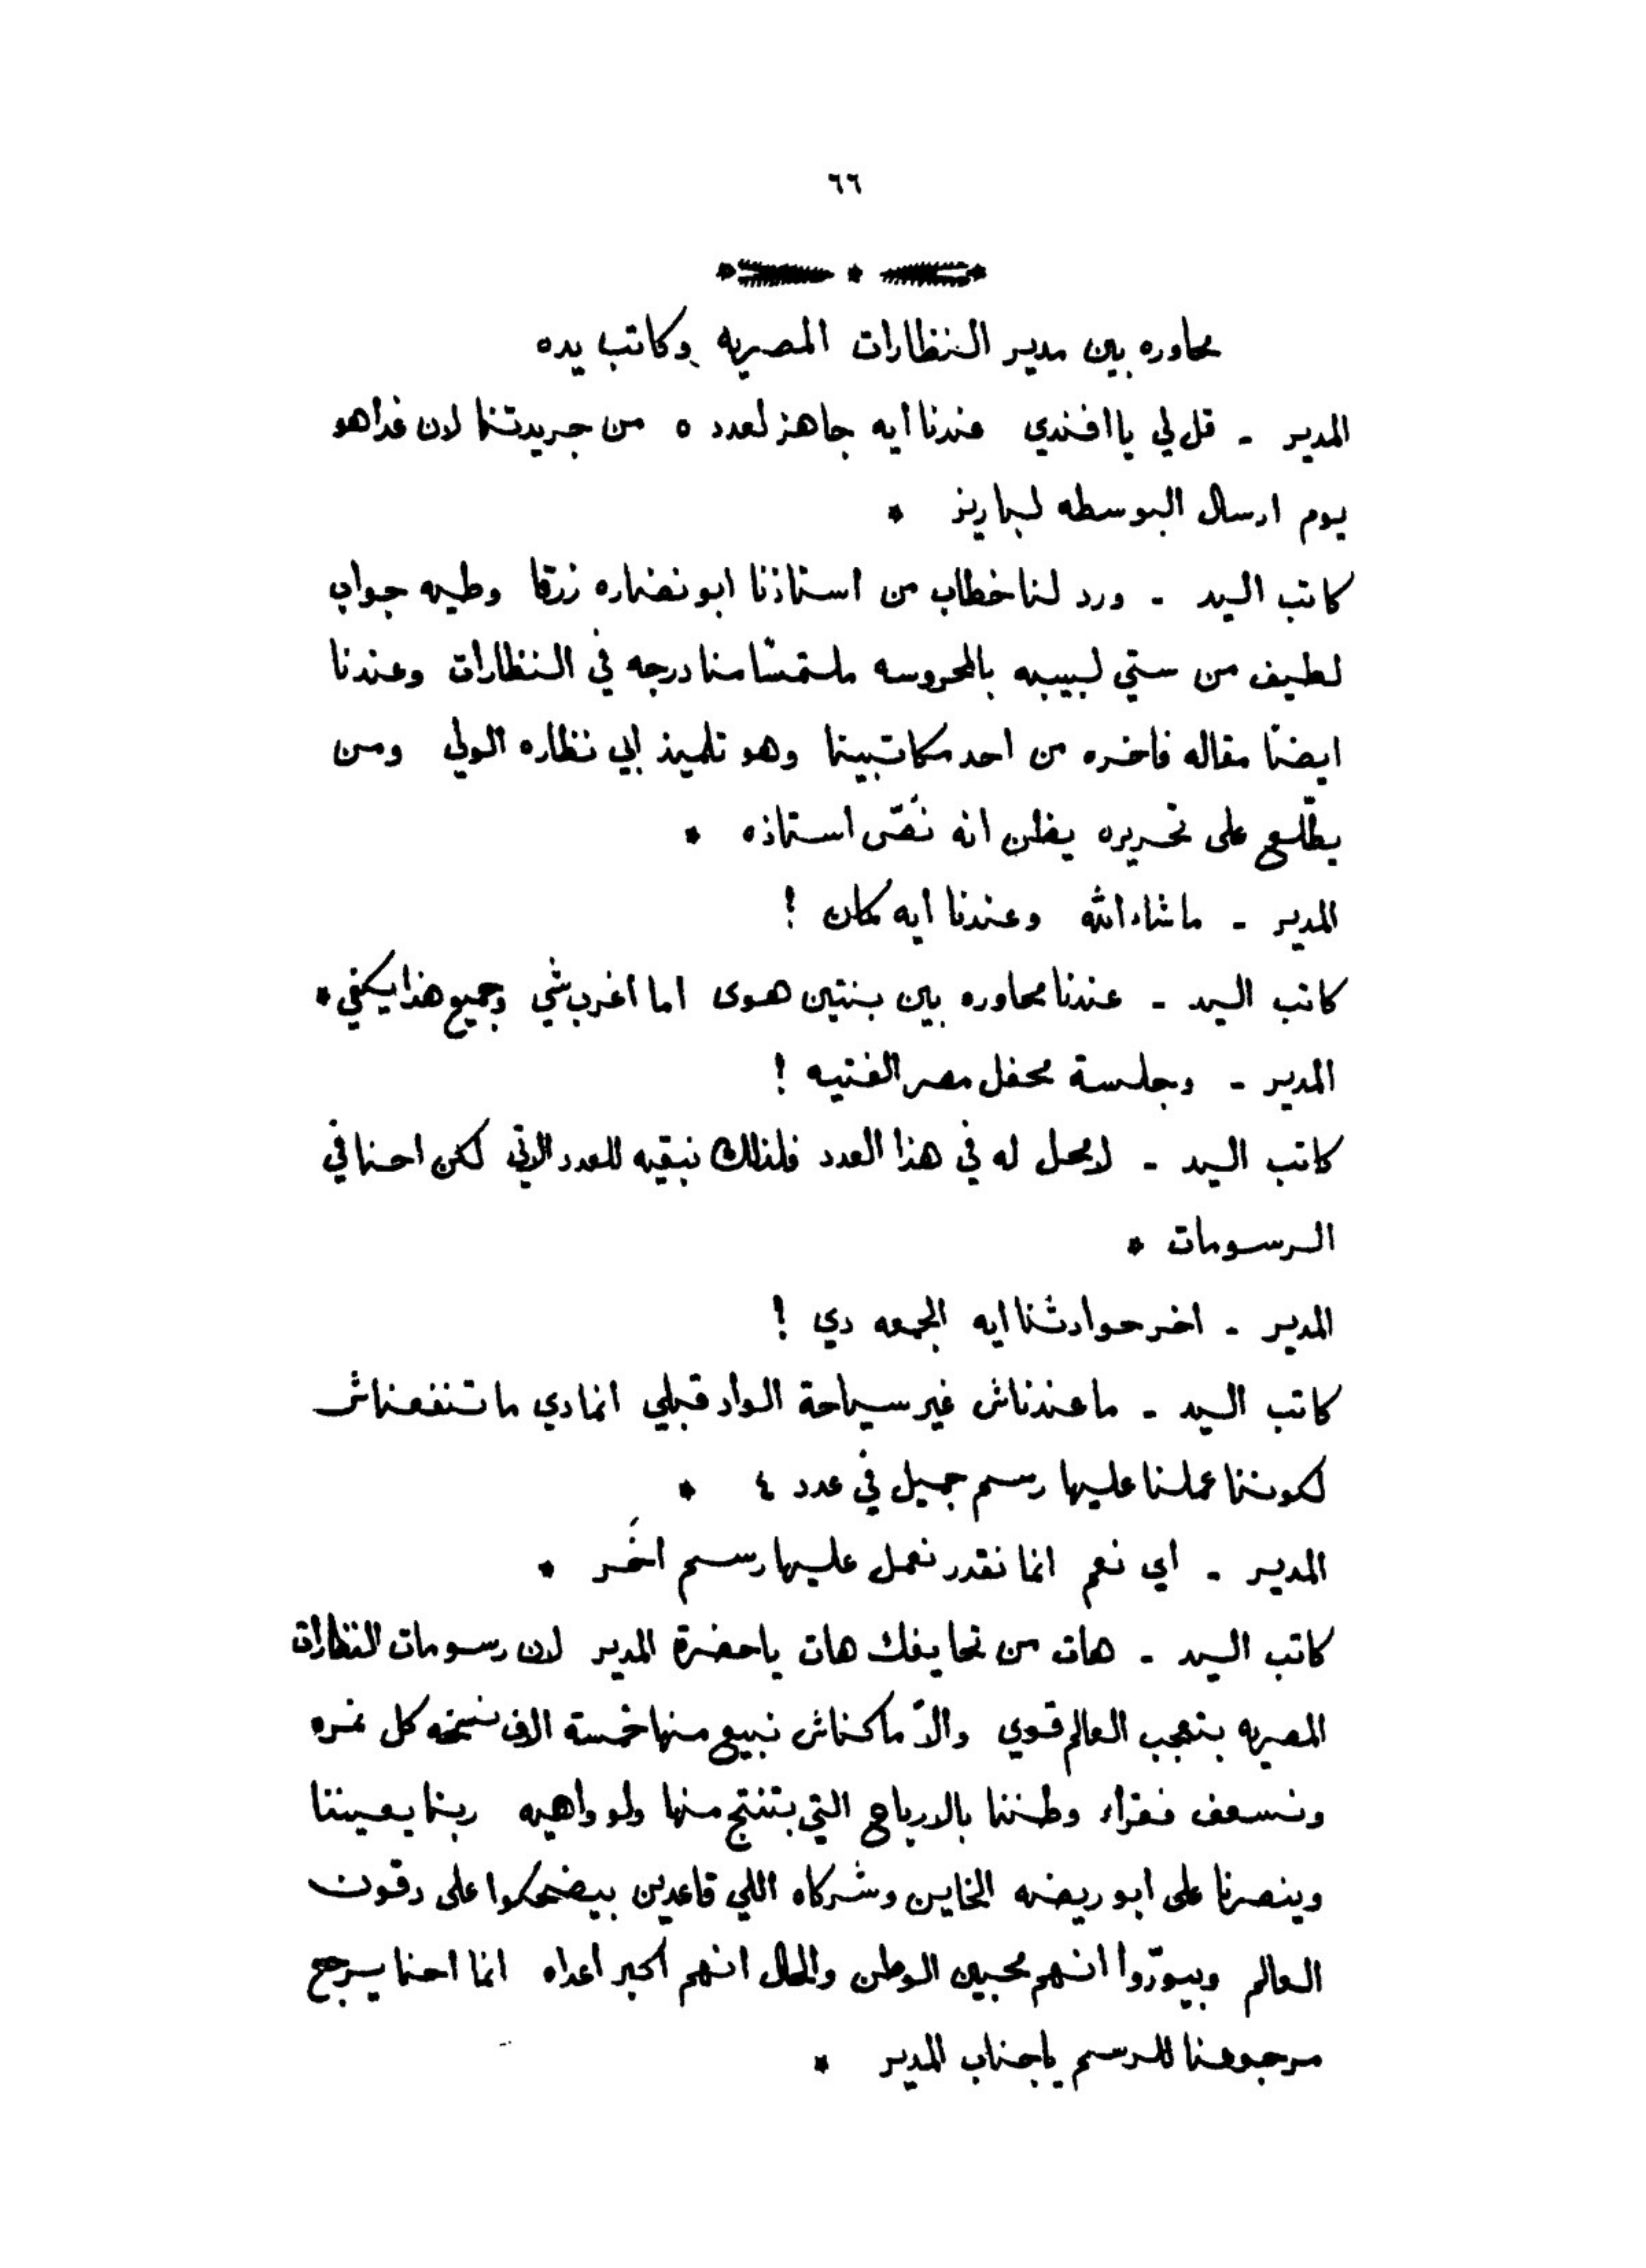 ٦٦
محاوره بين مدير النظارات المصريه وكاتب يده
المدير - قل لي يا افندي عندنا أيه جاهز لعدد ٥ من جريدتنا لان غدا هو
يوم ارسال البوسطه لباريز *
كاتب اليد - ورد لنا خطاب من استاذنا ابو نضاره زرقا وطيه جواب
لطيف من ستي لبيبه بالمحروسه ملتمسًا منا درجه في النظارات وعندنا
ايضًا مقاله فاخره من احد مكاتبينا وهو تلميذ ابي نظاره الولي ومن
يطّلع على تحريره يظن انه نَفَس استاذه *
المدير - ما شاء الله وعندنا ايه كمان !
كاتب اليد - عندنا محاوره بين بنتين هوى اما اغرب شي وجميع هذا يكفي *
المدير - وجلسة محفل مصر الفتيه !
كاتب اليد - لا محل له في هذا العدد فلذلك نبقيه للعدد الاتي لكن احنا في
الرسومات *
المدير - اخر حوادثنا ايه الجمعه دي !
كاتب اليد - ما عندناش غير سياحة الواد قبلي انما دي ما تنفعناش
لكوننا عملنا عليها رسم جميل في عدد ٤ *
المدير - اي نعم انما نقدر نعمل عليها رسم اخَر *
كاتب اليد - هات من تحايفك هات يا حضرة المدير لان رسومات النظارات
المصريه بتعجب العالم قوي والّا ما كناش نبيع منها خمسة الاف نسخه كل نمره
ونسعف فقراء وطننا بالارباح التي بتنتج منها ولو واهيه ربنا يعيننا
وينصرنا على ابو ريضه الخاين وشركاه اللي قاعدين بيضحكوا على دقون
العالم وبيورّوا انهم محبين الوطن والحال انهم اكبر اعداه انما احنا يرجع
مرجوعنا للرسم يا جناب المدير *